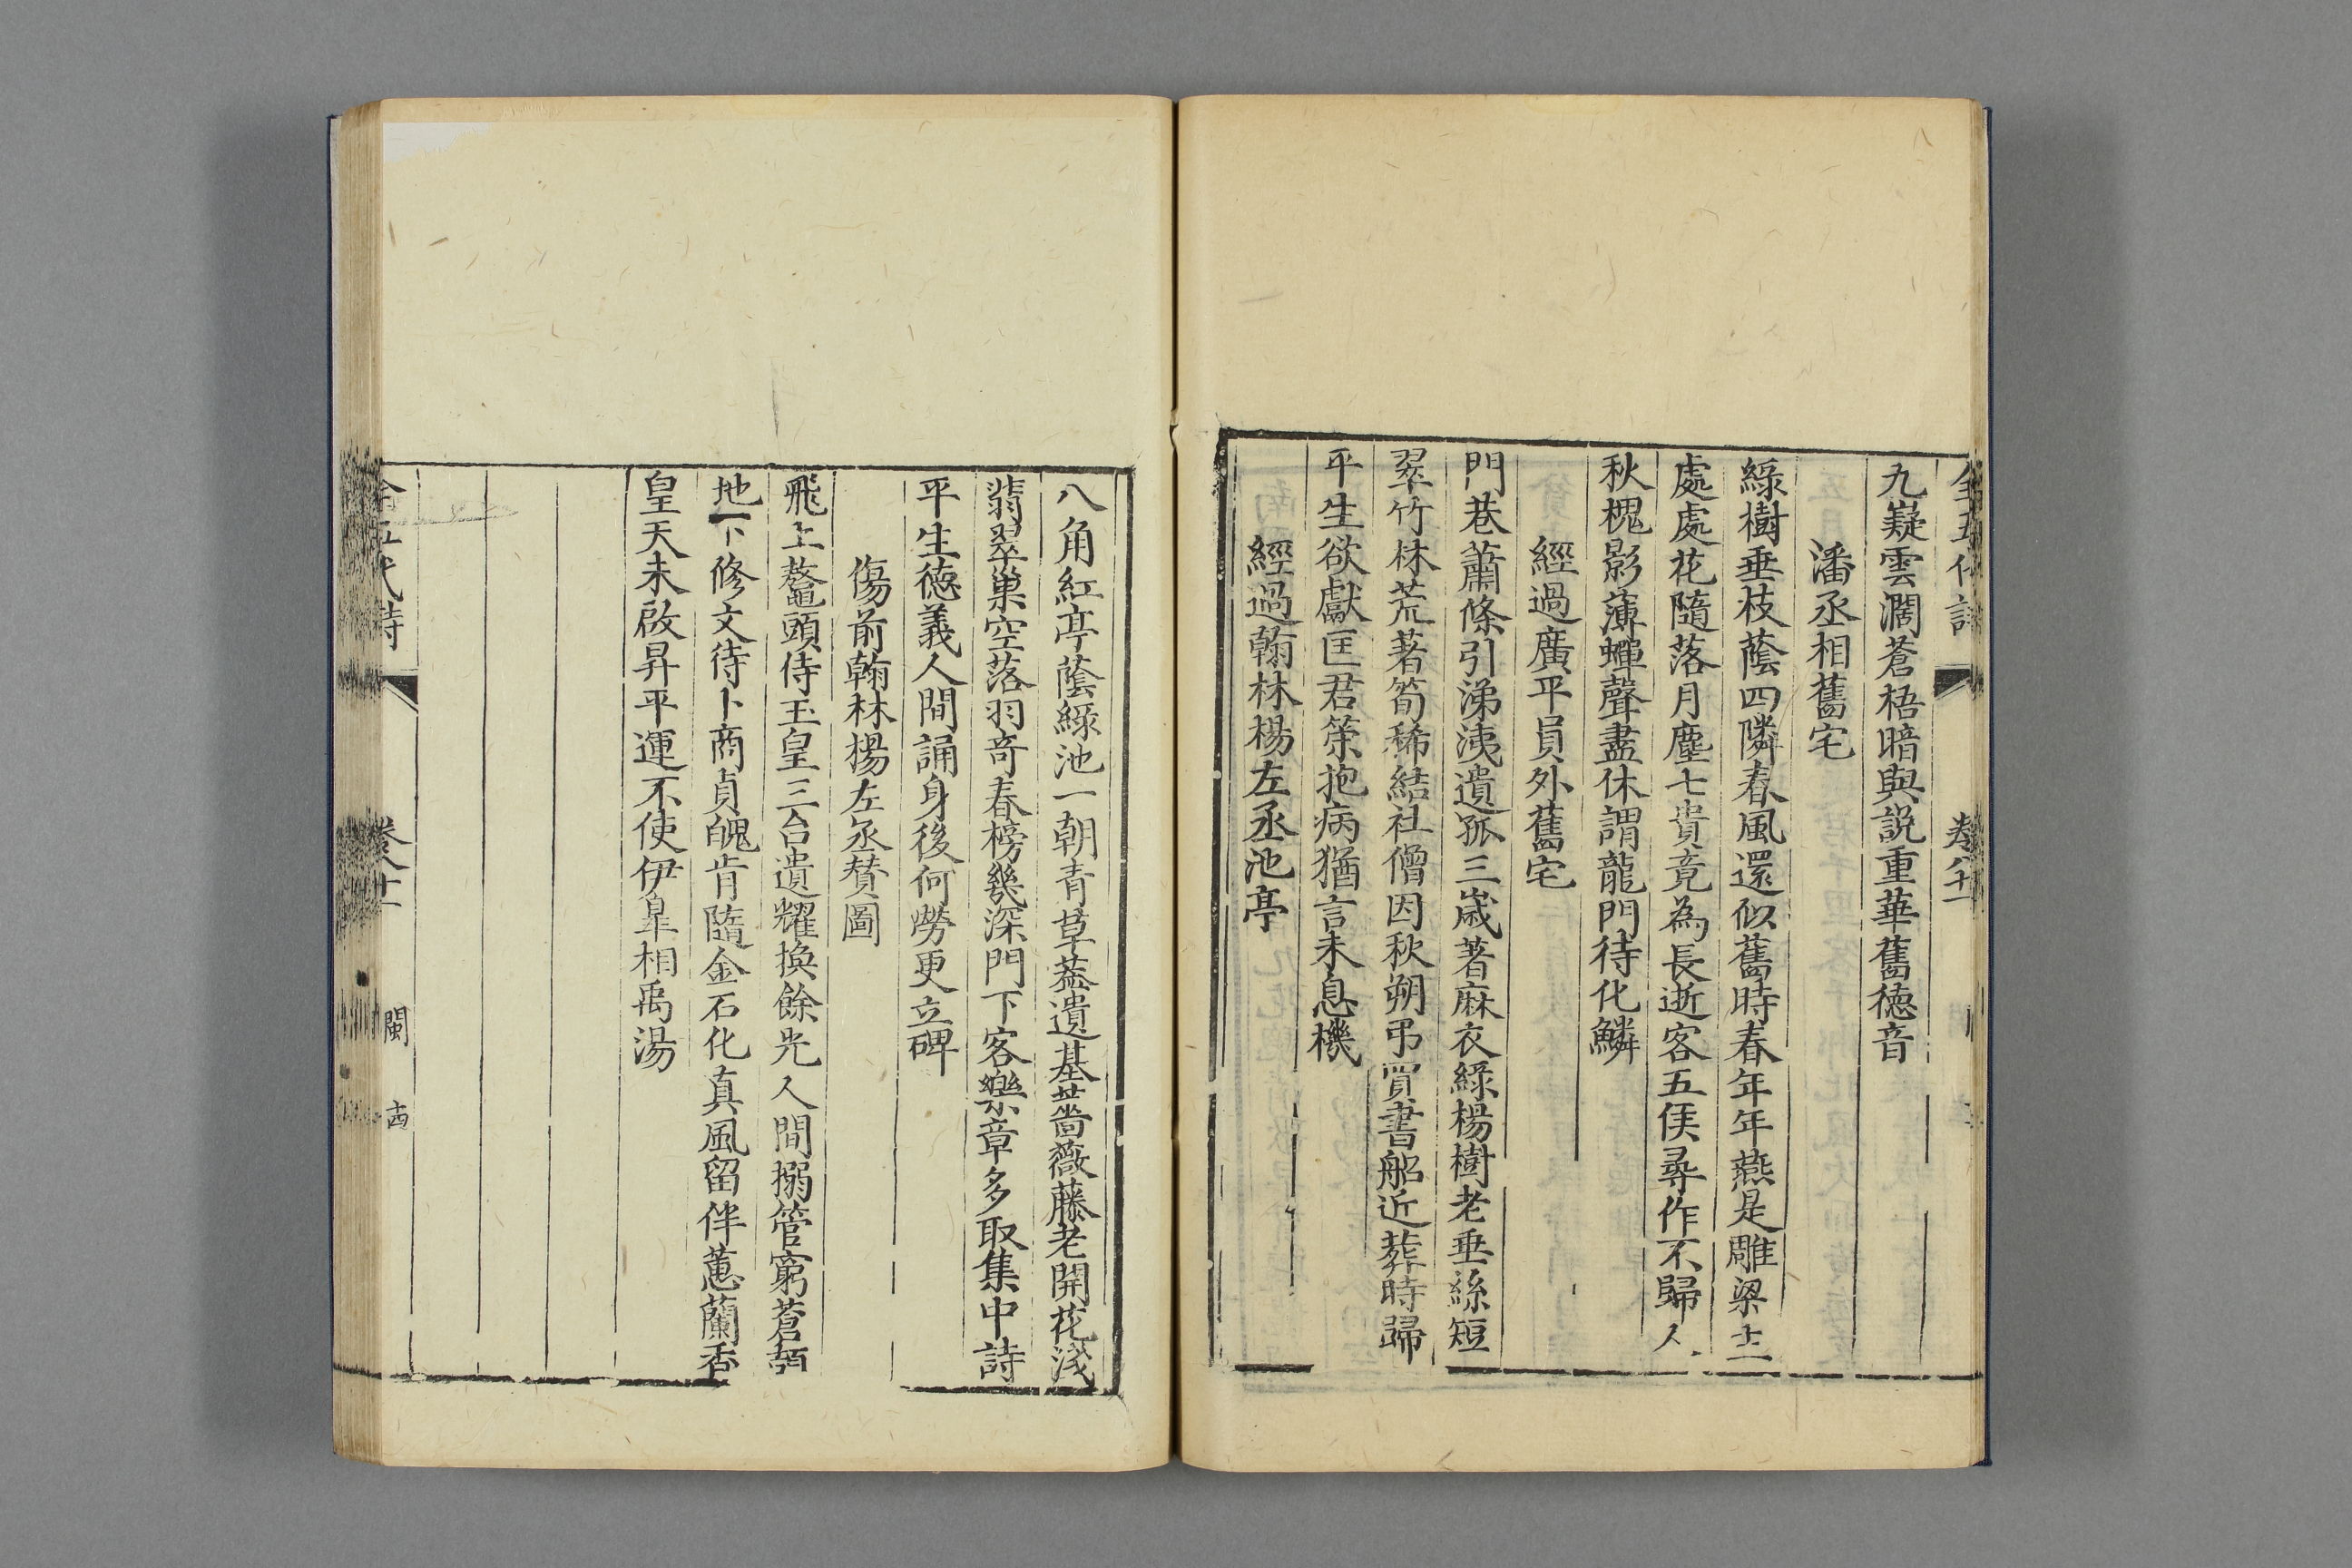 全五代詩 卷八十一
九嶷雲濶蒼梧暗與説重華舊德音
潘丞相舊宅
綠樹垂枝蔭四隣春風還似舊時春年年燕是雕梁主
處處花隨落月塵七貴竟為長逝客五侯尋作不歸人
秋槐影薄蟬聲盡休謂龍門待化鱗
經過廣平員外舊宅
門巷蕭條引涕洟遺孤三歲著麻衣綠楊樹老垂絲短
翠竹林荒著筍稀結社僧因秋朔弔買書船近葬時歸
平生欲獻匡君策抱病猶言未息機
經過翰林楊左丞池亭
八角紅亭蔭綠池一朝青草葢遺基薔薇藤老開花淺
翡翠巢空落羽奇春榜幾深門下客樂章多取集中詩
平生德義人間誦身後何勞更立碑
傷前翰林楊左丞賛圖
飛上鼇頭侍玉皇三台遺耀換餘光人間搦管窮蒼頡
地下修文待卜商貞魄肯隨金石化真風留伴蕙蘭香
皇天未啟昇平運不使伊皐相禹湯
全五代詩 卷八十一 閩 古